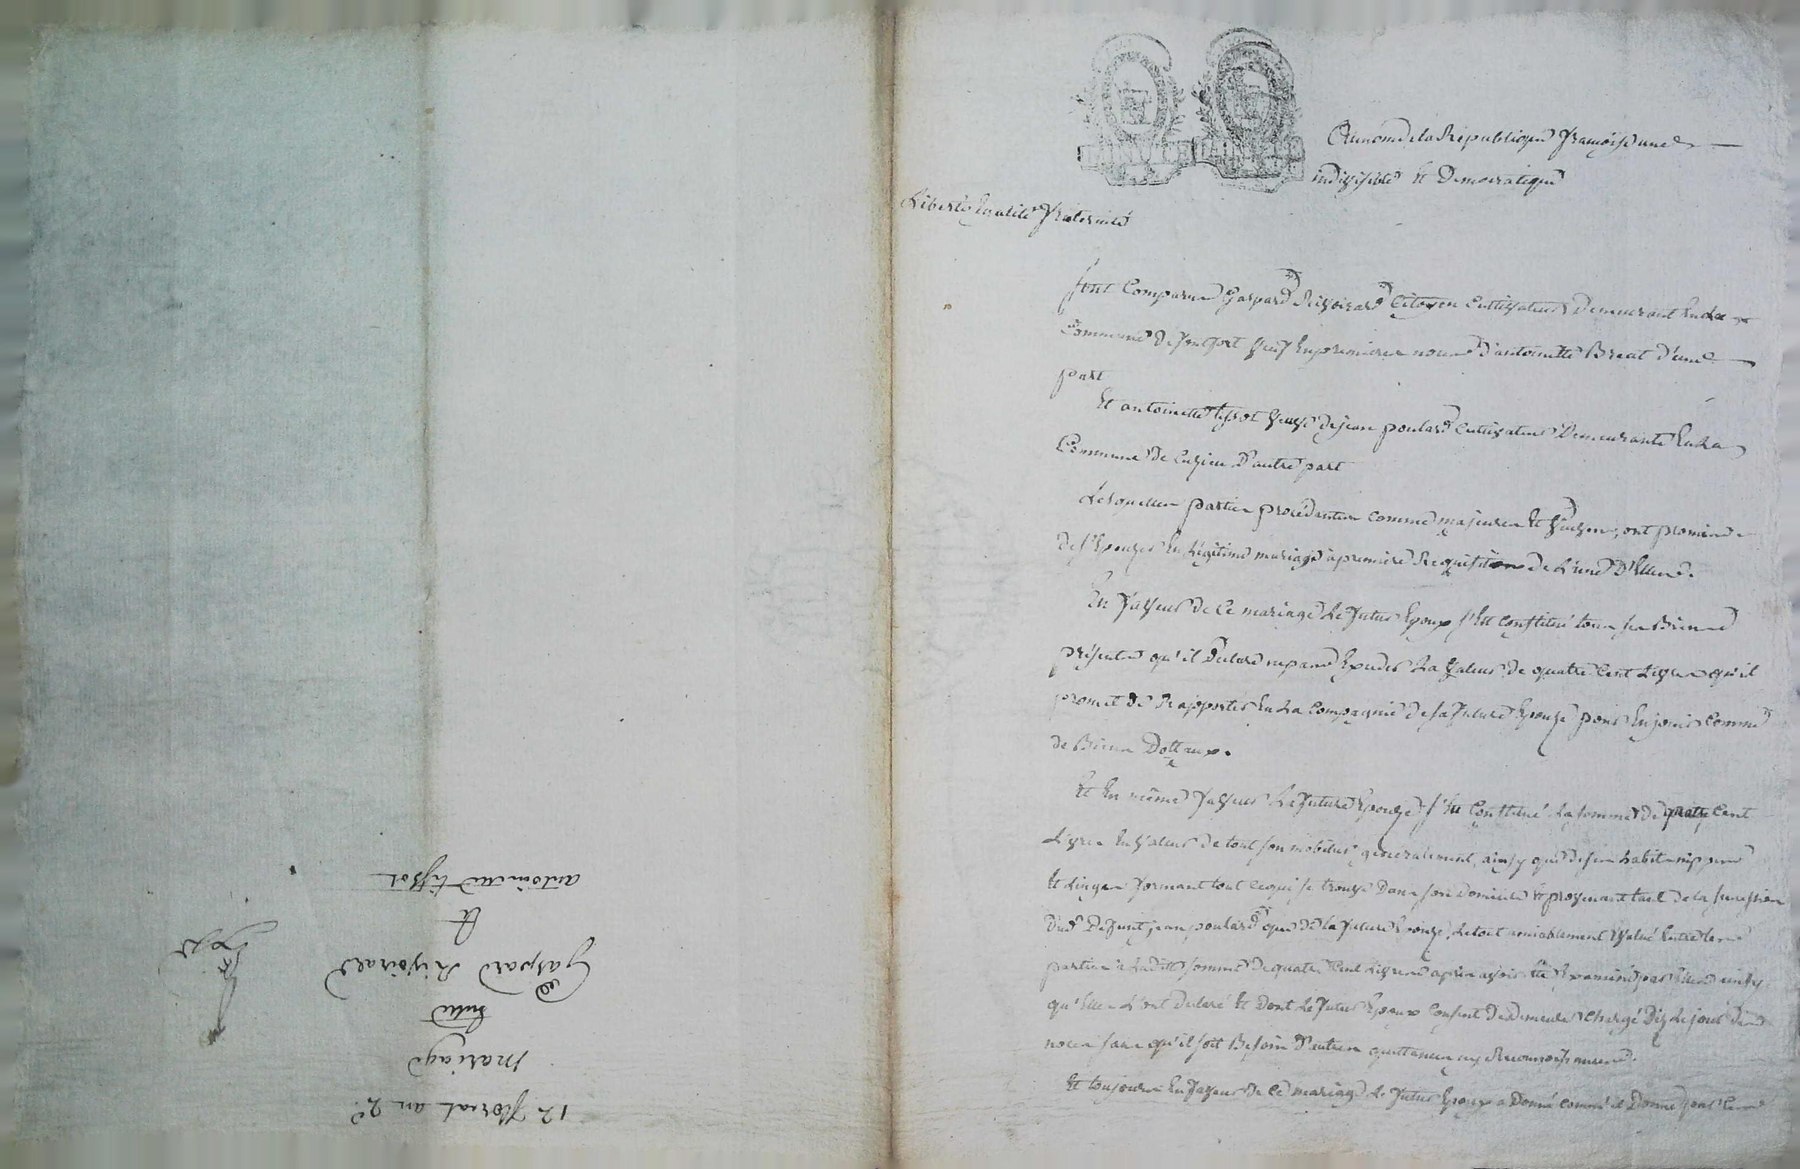 Au nom de la Republique françoise une
indivisible et Democratique
Liberté Egalité fraternité
sont Comparus Gaspard Rivoirard Citoyen Cultivateur Demeurant en La
Commune de veuf en premieres noces d'antoinette Breat d'une
part
Et antoinette tissot veuve de jean poulard Cultivateur Demeurante En La
Commune de Cuzieu D'autre part
Lesquelles parties procedantes comme majeures Et veuves, ont promis
de s'Epouser En Légitime mariage à premiere Requisition de L'une D'Elles.
En faveur de Ce mariage Le futur Epoux s'Est Constitué tous ses Biens
présents qu'il Declare ne pas Exceder La Valeur de quatre Cent Livres qu'il
promet de Rapporter En La Compagnie de sa future Epouse pour En jouir Comme
de Biens Dottaux.
Et En même faveur La future Epouse s'Est Constitué La somme de quatre Cent
Livres En Valeur de tout son mobilier généralement, ainsy que de ses habits nippes
Et Linges formant tout Ce qui se trouve Dans son domicile Et provenant tant de la succession
Dud. Defunt jean poulard que de la future Epouse, Le tout amiablement Evalué Entre Les
parties à Ladite somme de quatre Cent Livres après avoir Eté Examiné par Elles ainsy
qu'Elles L'ont Declaré Et Dont Le futur Epoux Consent de Demeurer Chargé Dès Le jour des
noces sans qu'il soit Besoin D'autres quittances ny Reconnoissances.
Et toujours En faveur de Ce mariage Le futur Epoux a Donné Comme il Donne
12 floreal an 2e
mariage
Entre
Gaspard Rivoirard
Et
antoinette tissot
Expé